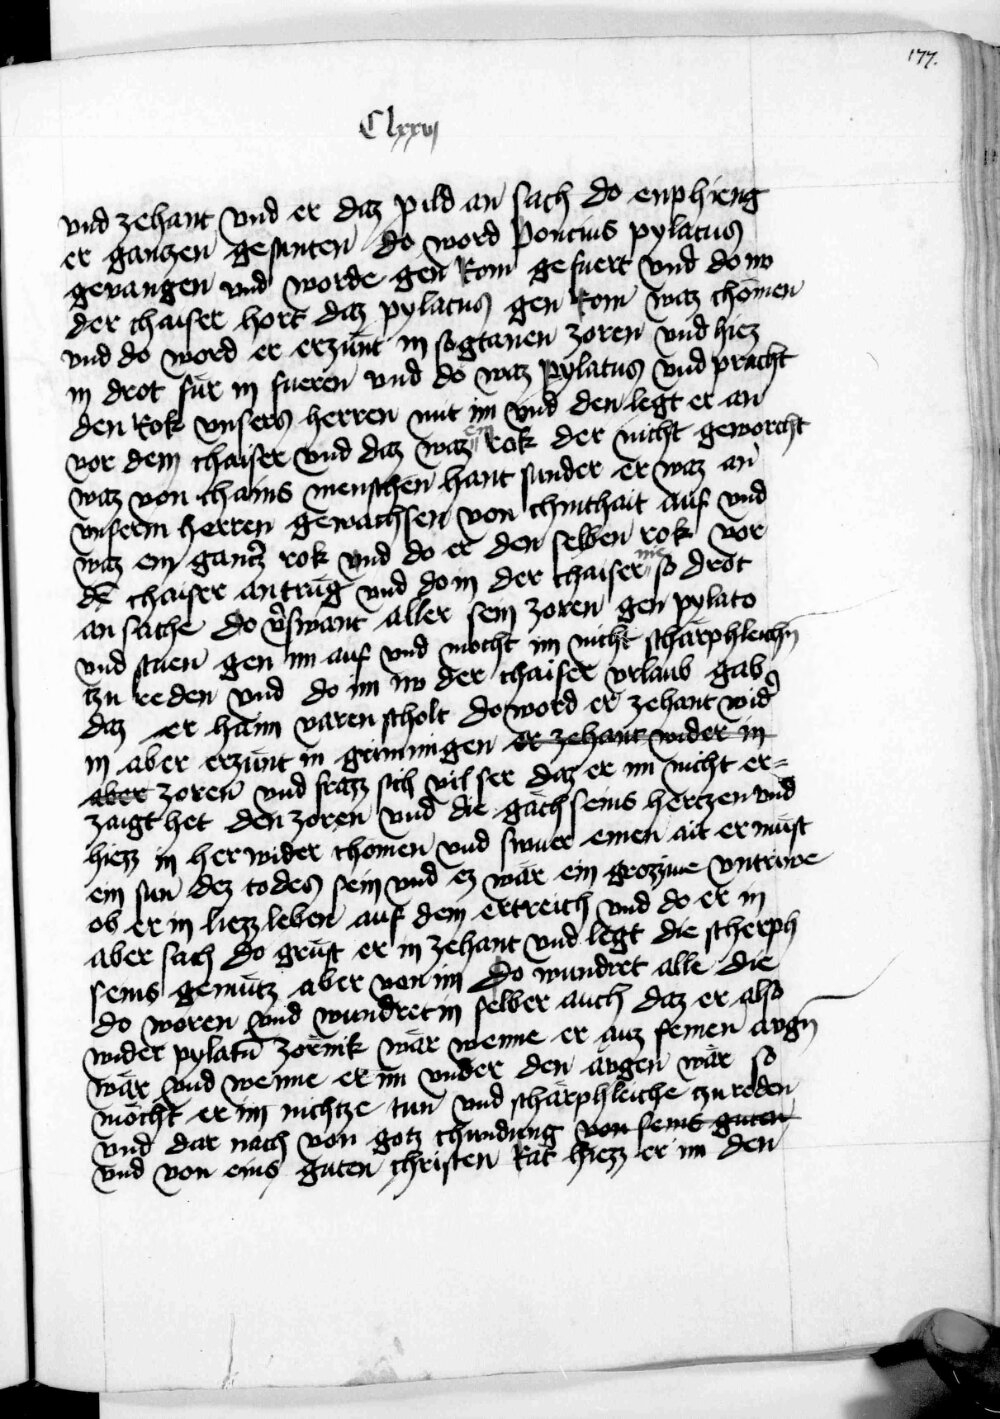 177.
Clxxvj
vnd zehant vnd er daz pild an sach do enphieng
er gantzen gesunten do word Poncius pylatus
gevangen vnd worde gen Rom gefuert vnd do nv
der chaiser hort daz pylatus gen Rom waz chömen
vnd do word er erzünt in sogtanen zoren vnd hiez
in drot für in fueren vnd do waz pylatus vnd pracht
den Rok vnsers herren mit im vnd den legt er an
vor dem chaiser vnd daz waz ein rok der nicht geworcht
waz von chains menschen hant sunder er waz an
vnserm herren gewachsen von chinthait auf vnd
waz ein gantz rok vnd do er den selben rok vor
dē chaiser an trug vnd do in der chaiser nie so drot
an sache do v̄swant aller sein zoren gen pylato
vnd stuen gen im auf vnd mocht im nicht schärphleichn̄
tzu reden vnd do im nv der chaiser vrlaub gab
daz er haim varen scholt do word er zehant wid̄
in aber erzünt in grimmigen er zehant wider in
aber zoren vnd frazz sich vil ser daz er im nicht er=
zaigt het den zoren vnd die gäch seins hertzen vnd
hiezz in herwider chömen vnd swuer einen ait er müst
ein sun dez todes sein vnd ez wär ein grozzew vntriwe
ob er in liezz leben auf dem ertreich vnd do er in
aber sach do grüst er in zehant vnd legt die scherph
seins gemütz aber von im do wundret alle die
do woren vnd wundret in selber auch daz er also
wider pylatū zörnik wär wenne er auz seinen avgn̄
wär vnd wenne er im vnder den avgen wär so
möcht er im nichtze tun vnd schärphleiche tzu reden
vnd dar nach von gotz chundung von seins guten
vnd von eins guten christen Rat hiezz er im den